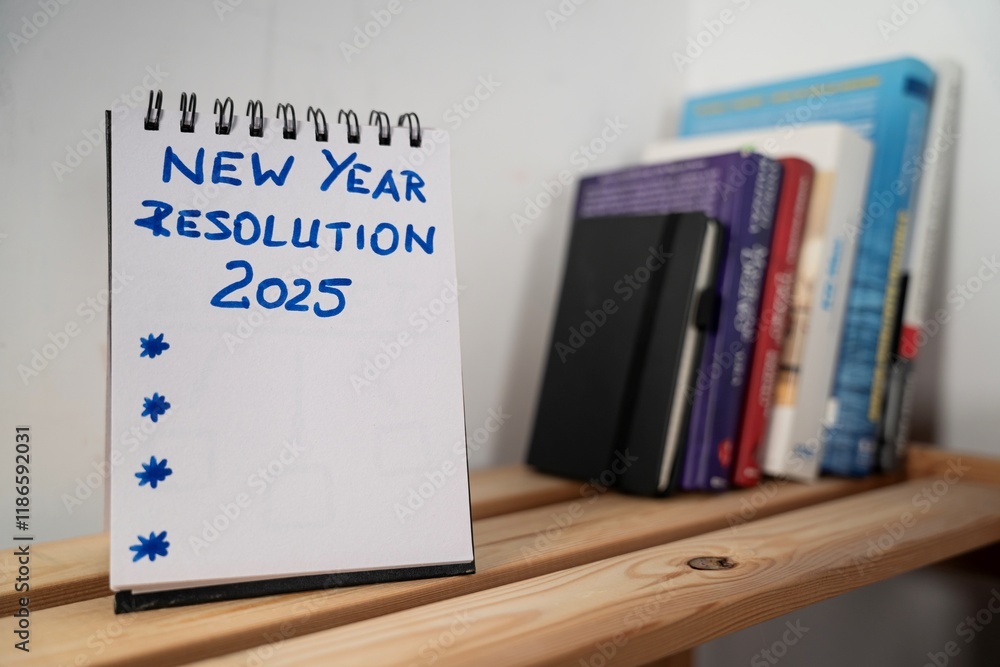 NEW YEAR
RESOLUTION
2025
Adobe Stock | #1186592031